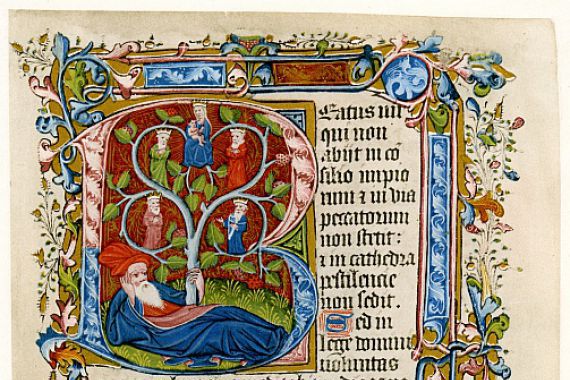 Beatus uir
qui non
abijt in cō
silio impio
rum ⁊ in uia
peccatorum
non stetit:
⁊ in cathedra
pestilencie
non sedit.
Sed in
lege domini
uoluntas